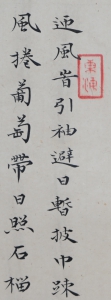 迎風旹引袖避日暫披巾疎
風捲葡萄帶日照石榴